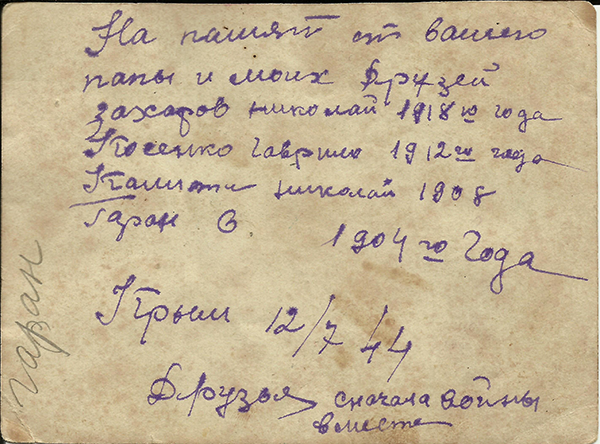 На памят от вашего
папы и моих Друзей
захаров николай 1918 го года
Косенко гаврило 1912 го года
николай 1908
Гаран С
1904 го Года
Крым 12/7 44
Друзья сначала войны
вместе
гаран